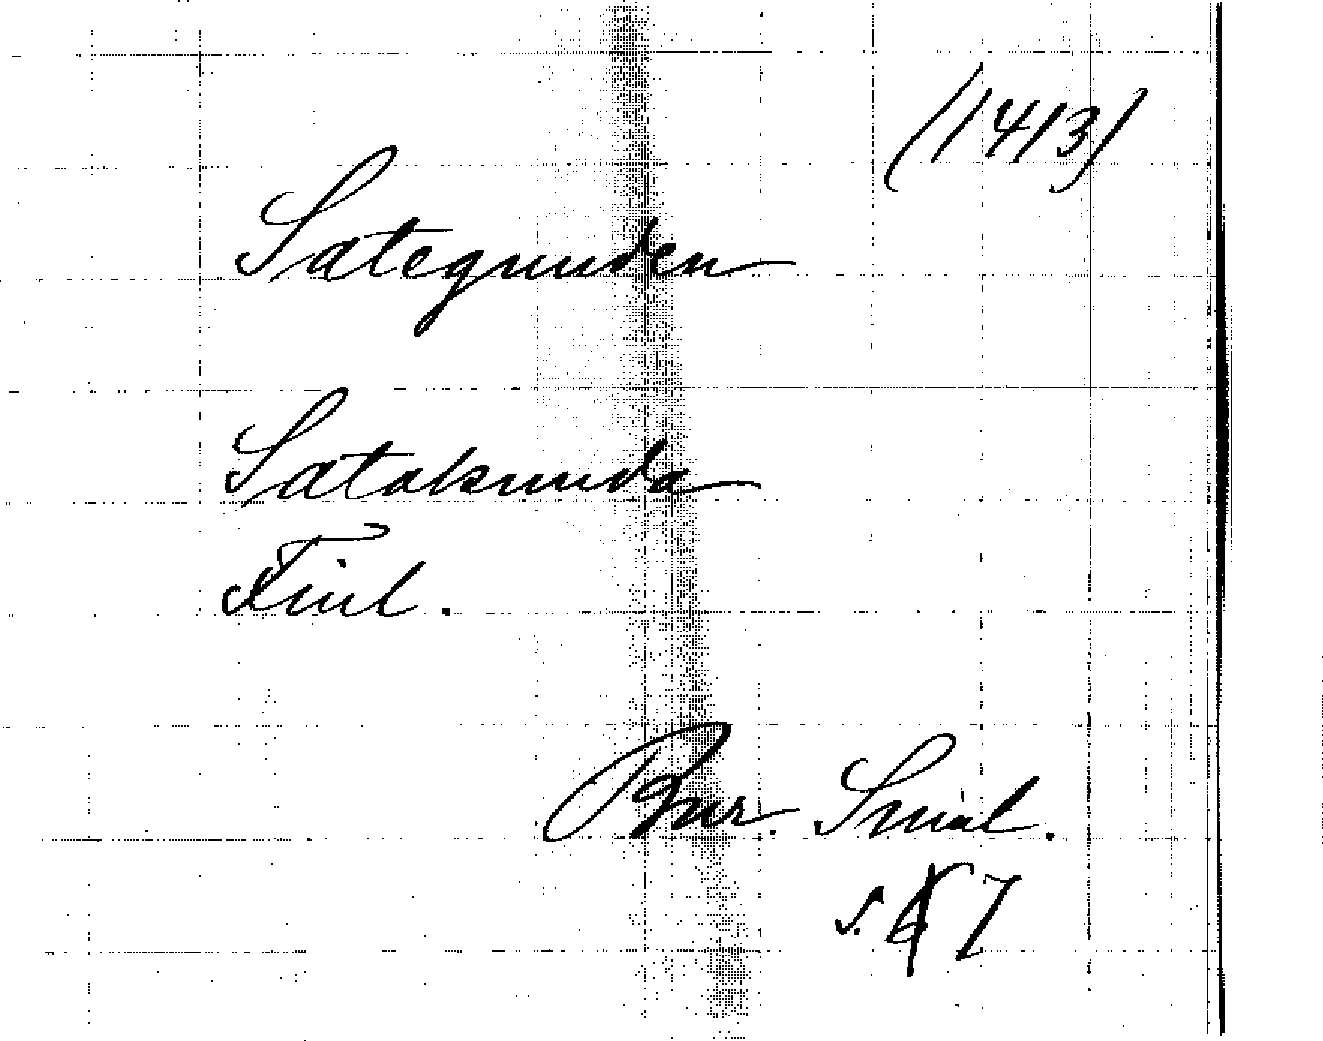 (1413)
Sategunden
Satakunda
Finl.
Bur. Smål.
s. 7